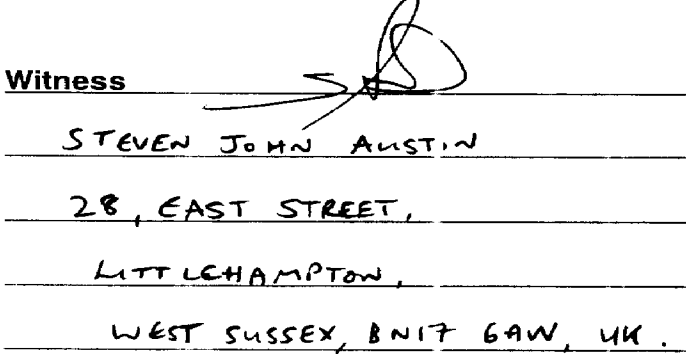 Witness
STEVEN JOHN AUSTIN
28, EAST STREET,
LITTLEHAMPTON,
WEST SUSSEX, BN17 6AW, UK.